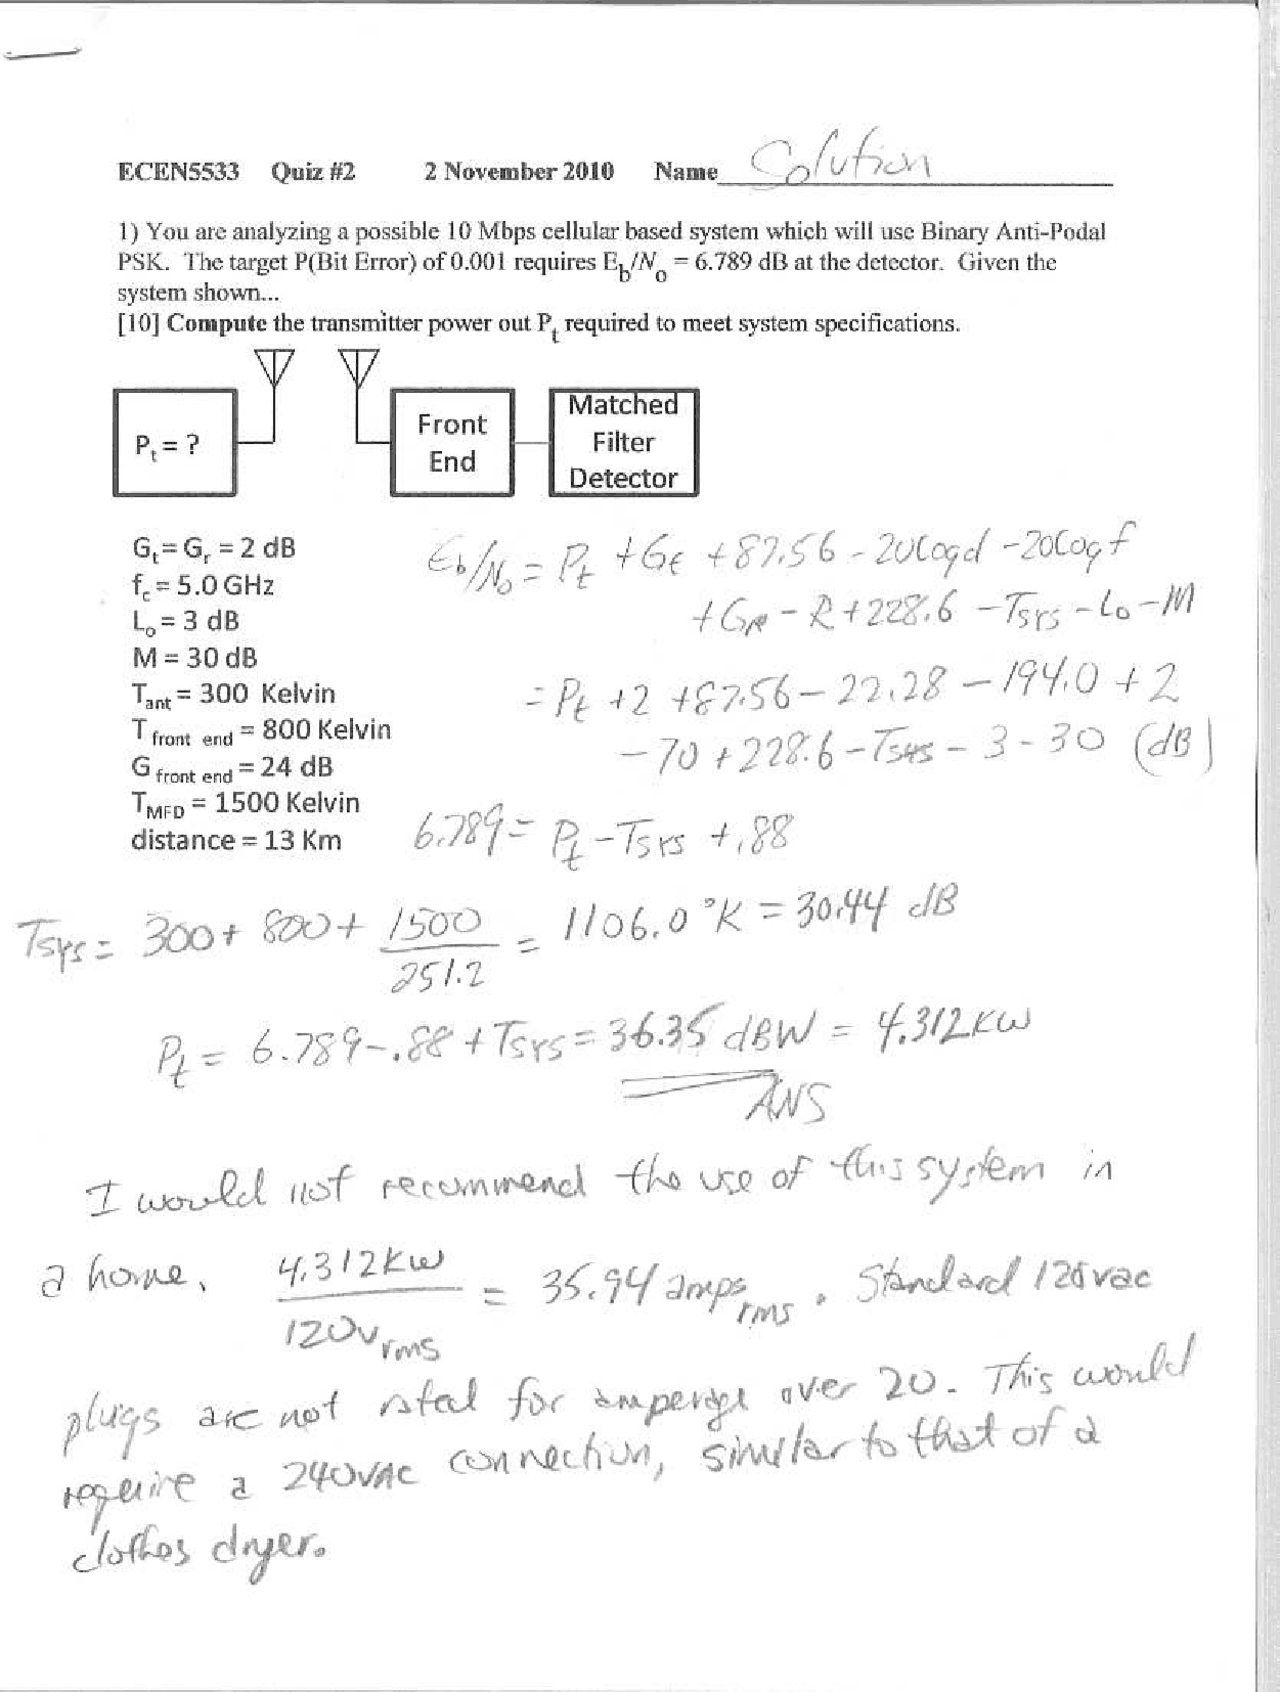 ECEN5533 Quiz #2 2 November 2010 Name Solution
1) You are analyzing a possible 10 Mbps cellular based system which will use Binary Anti-Podal
PSK. The target P(Bit Error) of 0.001 requires E_b/N_o = 6.789 dB at the detector. Given the
system shown...
[10] Compute the transmitter power out P_t required to meet system specifications.
P_t = ?
Front
End
Matched
Filter
Detector
G_t = G_r = 2 dB
f_c = 5.0 GHz
L_o = 3 dB
M = 30 dB
T_ant = 300 Kelvin
T_front end = 800 Kelvin
G_front end = 24 dB
T_MFD = 1500 Kelvin
distance = 13 Km
Eb/No = Pt + Gt + 87.56 - 20log d - 20log f
+ GR - R + 228.6 - Tsys - Lo - M
= Pt + 2 + 87.56 - 22.28 - 194.0 + 2
- 70 + 228.6 - Tsys - 3 - 30 (dB)
6.789 = Pt - Tsys + .88
Tsys = 300 + 800 + 1500/251.2 = 1106.0 °K = 30.44 dB
Pt = 6.789 - .88 + Tsys = 36.35 dBW = 4.312KW
ANS
I would not recommend the use of this system in
a home. 4.312KW/120v rms = 35.94 amps rms. Standard 120vac
plugs are not rated for amperage over 20. This would
require a 240VAC connection, similar to that of a
clothes dryer.